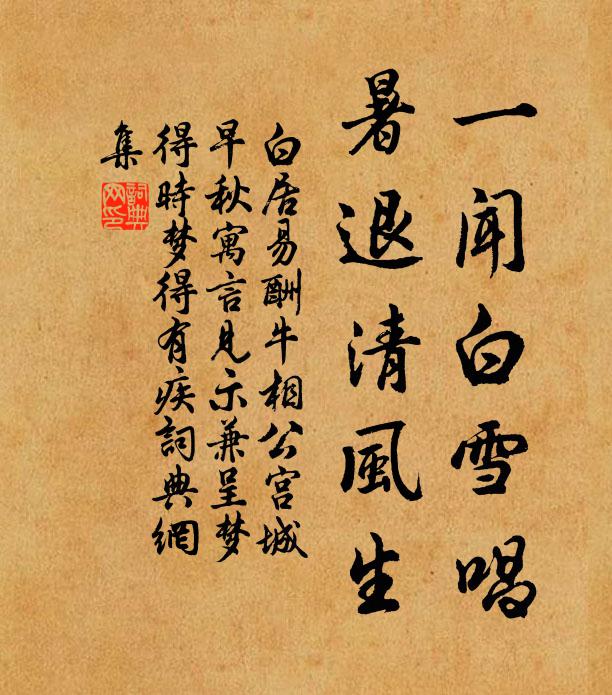 一闻白雪唱
暑退清風生
白居易酬牛相公宫城
早秋寓言見示兼呈梦
得時梦得有疾詞典網
集
詞典
网印